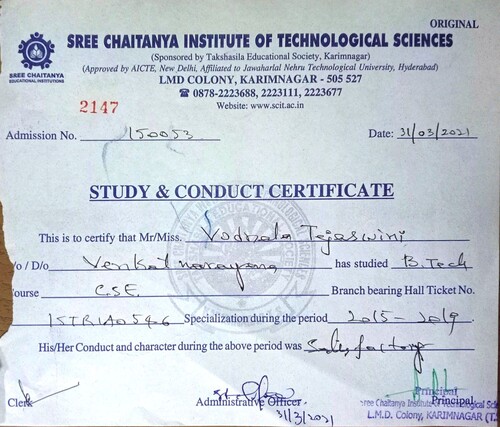 ORIGINAL
SREE CHAITANYA INSTITUTE OF TECHNOLOGICAL SCIENCES
(Sponsored by Takshasila Educational Society, Karimnagar)
(Approved by AICTE, New Delhi, Affiliated to Jawaharlal Nehru Technological University, Hyderabad)
SREE CHAITANYA
EDUCATIONAL INSTITUTIONS
LMD COLONY, KARIMNAGAR - 505 527
☎ 0878-2223688, 2223111, 2223677
Website: www.scit.ac.in
2147
Admission No. 150053 Date: 31/03/2021
STUDY & CONDUCT CERTIFICATE
This is to certify that Mr/Miss. Vodnala Tejaswini
/o / D/o Venkatnarayana has studied B.Tech
ourse C.S.E. Branch bearing Hall Ticket No.
15TR1A0546 Specialization during the period 2015-2019.
His/Her Conduct and character during the above period was Satisfactory
Clerk Administrative Officer Principal
31/3/2021
Principal
Sree Chaitanya Institute of Technological Sci
L.M.D. Colony, KARIMNAGAR (T.